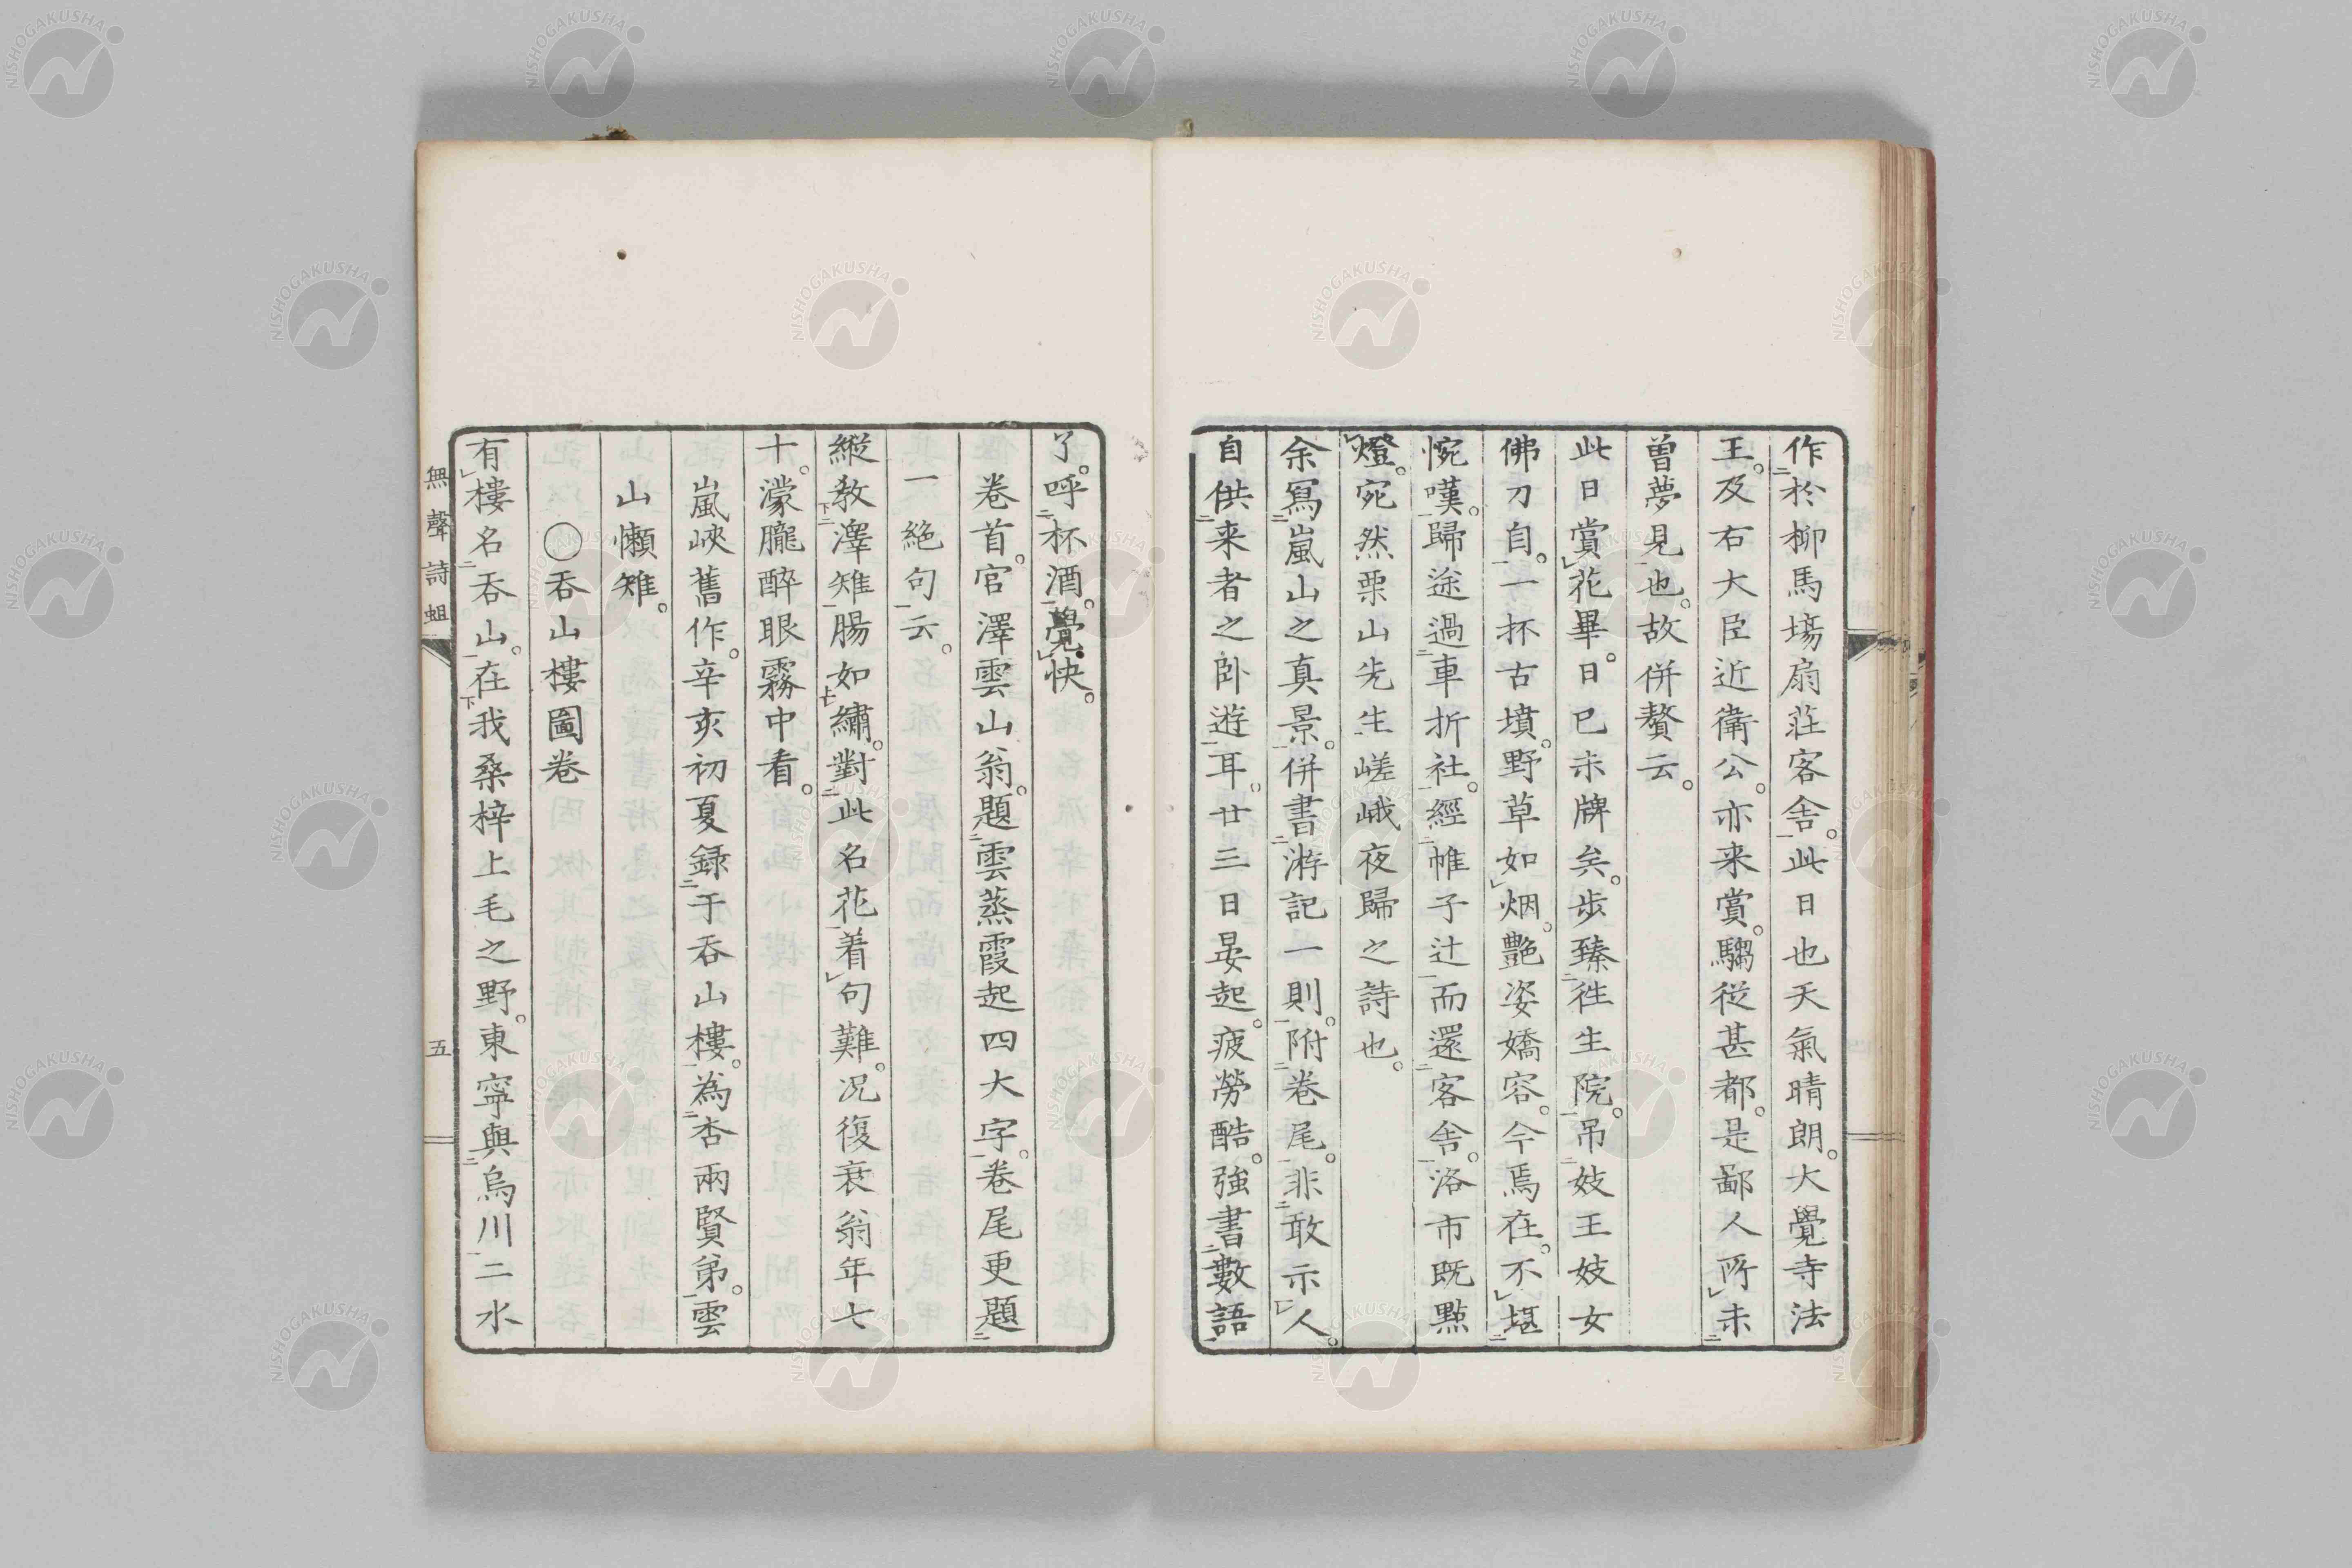 作於柳馬場扇荘客舎。此日也天氣晴朗。大覺寺法
王。及右大臣近衛公。亦来賞。騶從甚都。是鄙人所未
曽夢見也。故併贅云。
此日賞花畢。日已未牌矣。歩臻往生院。吊妓王妓女
佛刀自。一抔古墳。野草如烟。艶姿嬌容。今焉在。不堪
惋嘆。歸途過車折社。經帷子辻而還客舎。洛市既點
燈。宛然栗山先生嵯峨夜歸之詩也。
余冩嵐山之真景。併書游記一則。附巻尾。非敢示人。
自供来者之卧遊耳。廿三日晏起。疲勞酷。強書數語
了。呼杯酒。覺快。
巻首。官澤雲山翁。題雲蒸霞起四大字。巻尾更題
一絶句云。
縱教澤雉腸如繡。對此名花着句難。况復衰翁年七
十。濛朧醉眼霧中看。
嵐峽舊作。辛亥初夏録于呑山樓。為杏兩賢弟。雲
山懶雉。
〇呑山樓圖巻
有樓名呑山。在我桑梓上毛之野。東寧與烏川二水
無聲詩蛆
五
NISHOGAKUSHA